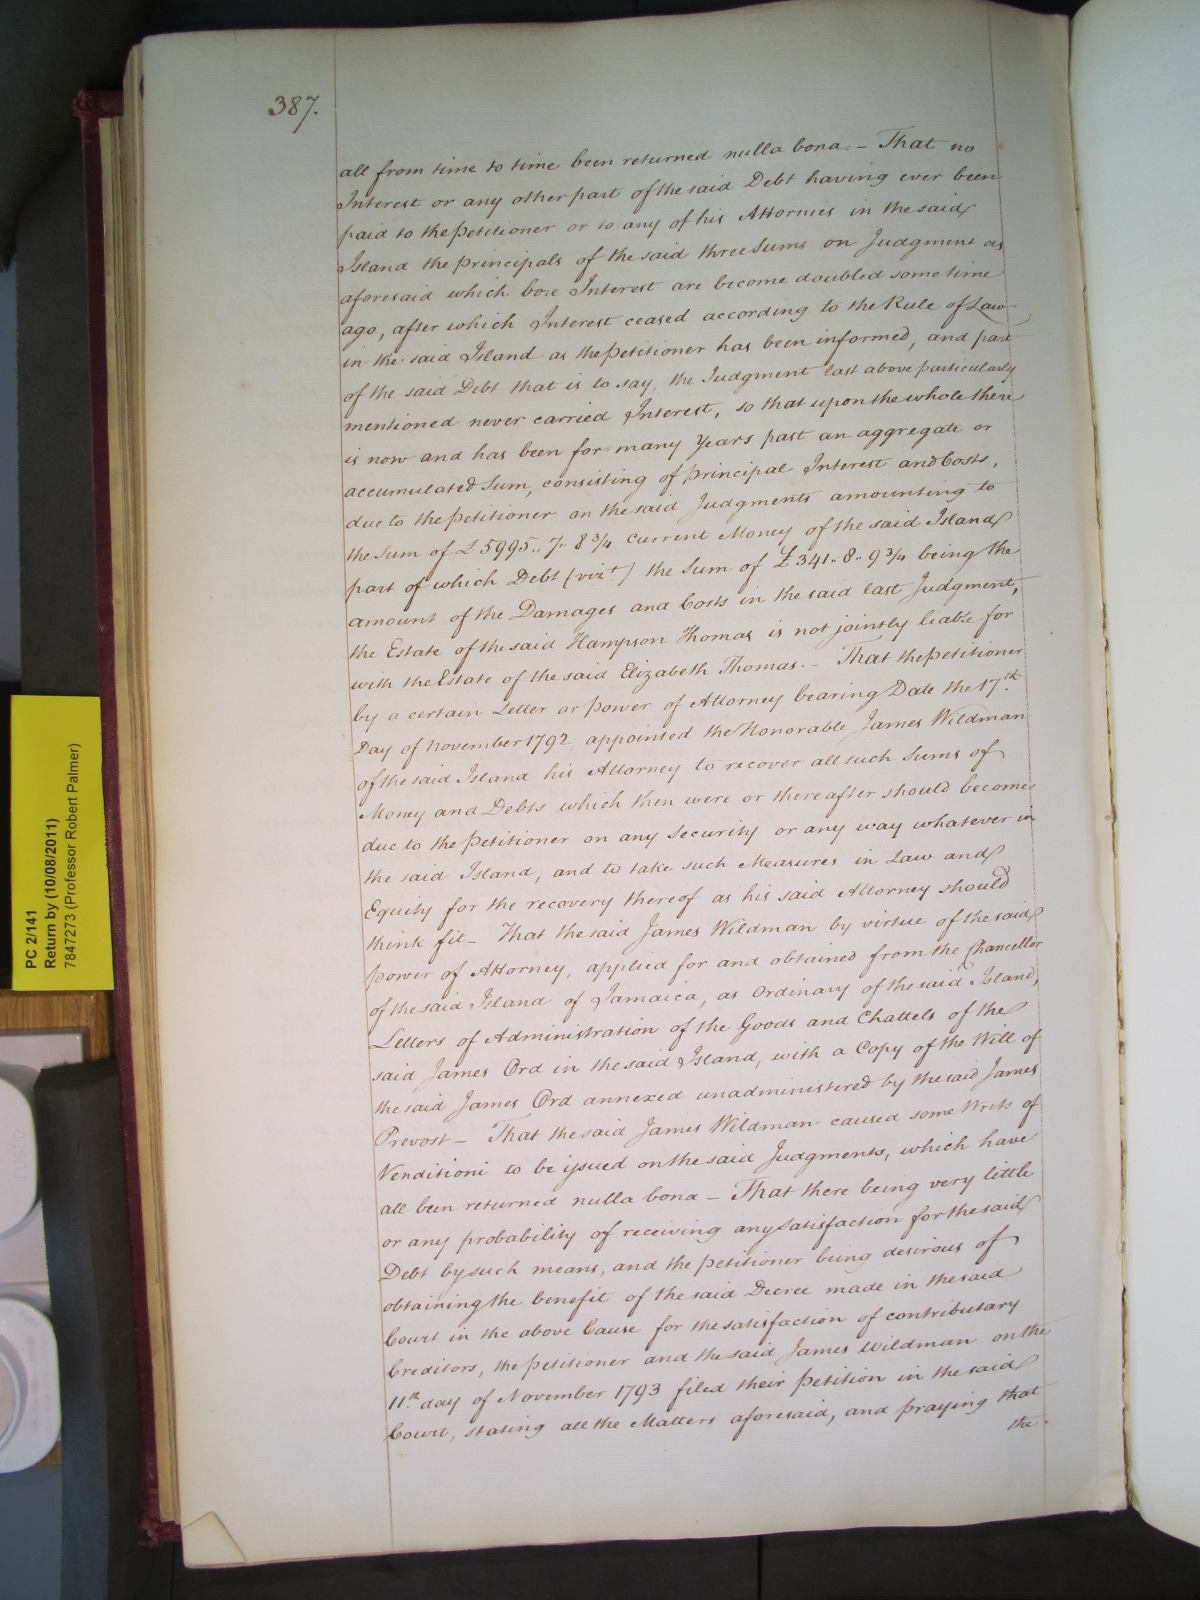 387.
all from time to time been returned nulla bona. – That no
Interest or any other part of the said Debt having ever been
paid to the Petitioner or to any of his Attornies in the said
Island the principals of the said three Sums on Judgment as
aforesaid which bore Interest are become doubled some time
ago, after which Interest ceased according to the Rule of Law
in the said Island as the Petitioner has been informed, and part
of the said Debt that is to say, the Judgment last above particularly
mentioned never carried Interest, so that upon the whole there
is now and has been for many Years past an aggregate or
accumulated Sum, consisting of principal Interest and Costs,
due to the Petitioner on the said Judgments amounting to
the Sum of £5995.. 7.. 8 3/4 current Money of the said Island
part of which Debt (vizt.) the Sum of £341.. 8.. 9 3/4 being the
amount of the Damages and Costs in the said last Judgment,
the Estate of the said Hampson Thomas is not jointly liable for
with the Estate of the said Elizabeth Thomas. – That the Petitioner
by a certain Letter or power of Attorney bearing Date the 17th.
Day of November 1792, appointed the Honorable James Wildman
of the said Island his Attorney to recover all such Sums of
Money and Debts which then were or thereafter should become
due to the Petitioner on any Security or any way whatever in
the said Island, and to take such Measures in Law and
Equity for the recovery thereof as his said Attorney should
think fit – That the said James Wildman by virtue of the said
power of Attorney, applied for and obtained from the Chancellor
of the said Island of Jamaica, as Ordinary of the said Island,
Letters of Administration of the Goods and Chattels of the
said James Ord in the said Island, with a Copy of the Will of
the said James Ord annexed unadministered by the said James
Prevost – That the said James Wildman caused some Writs of
Venditioni to be issued on the said Judgments, which have
all been returned nulla bona – That there being very little
or any probability of receiving any Satisfaction for the said
Debt by such means, and the petitioner being desirous of
obtaining the benefit of the said Decree made in the said
Court in the above Cause for the satisfaction of contributary
Creditors, the Petitioner and the said James Wildman on the
11th. day of November 1793 filed their Petition in the said
Court, stating all the Matters aforesaid, and praying that
the
PC 2/141
Return by (10/08/2011)
7847273 (Professor Robert Palmer)